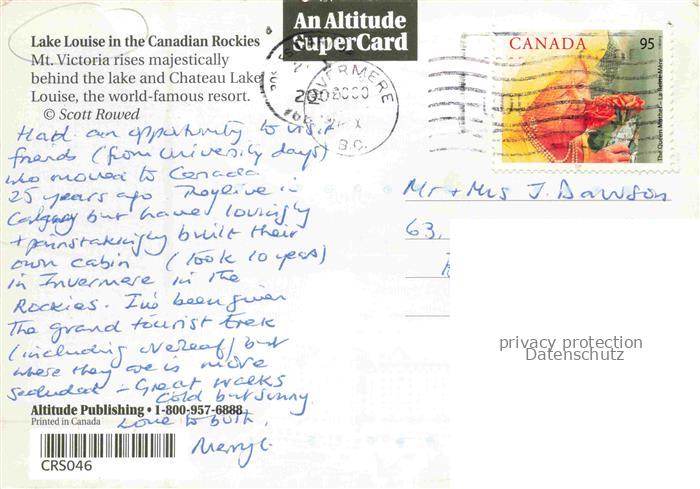 An Altitude
SuperCard
Lake Louise in the Canadian Rockies
Mt. Victoria rises majestically
behind the lake and Chateau Lake
Louise, the world-famous resort.
© Scott Rowed
INVERMERE
B.C.
CANADA 95
The Queen Mother - La Reine Mère
Had an opportunity to visit
friends (from university days)
who moved to Canada
25 years ago They live in
Calgary but have lovingly
+ painstakingly built their
own cabin (took 10 years)
in Invermere in the
Rockies. I've been given
The grand tourist trek
(including overleaf) but
where they are is more
secluded - Great walks
Cold but sunny.
Love to both,
Meryl.
Mr + Mrs J. Dawson
63,
privacy protection
Datenschutz
Altitude Publishing • 1-800-957-6888
Printed in Canada
CRS046